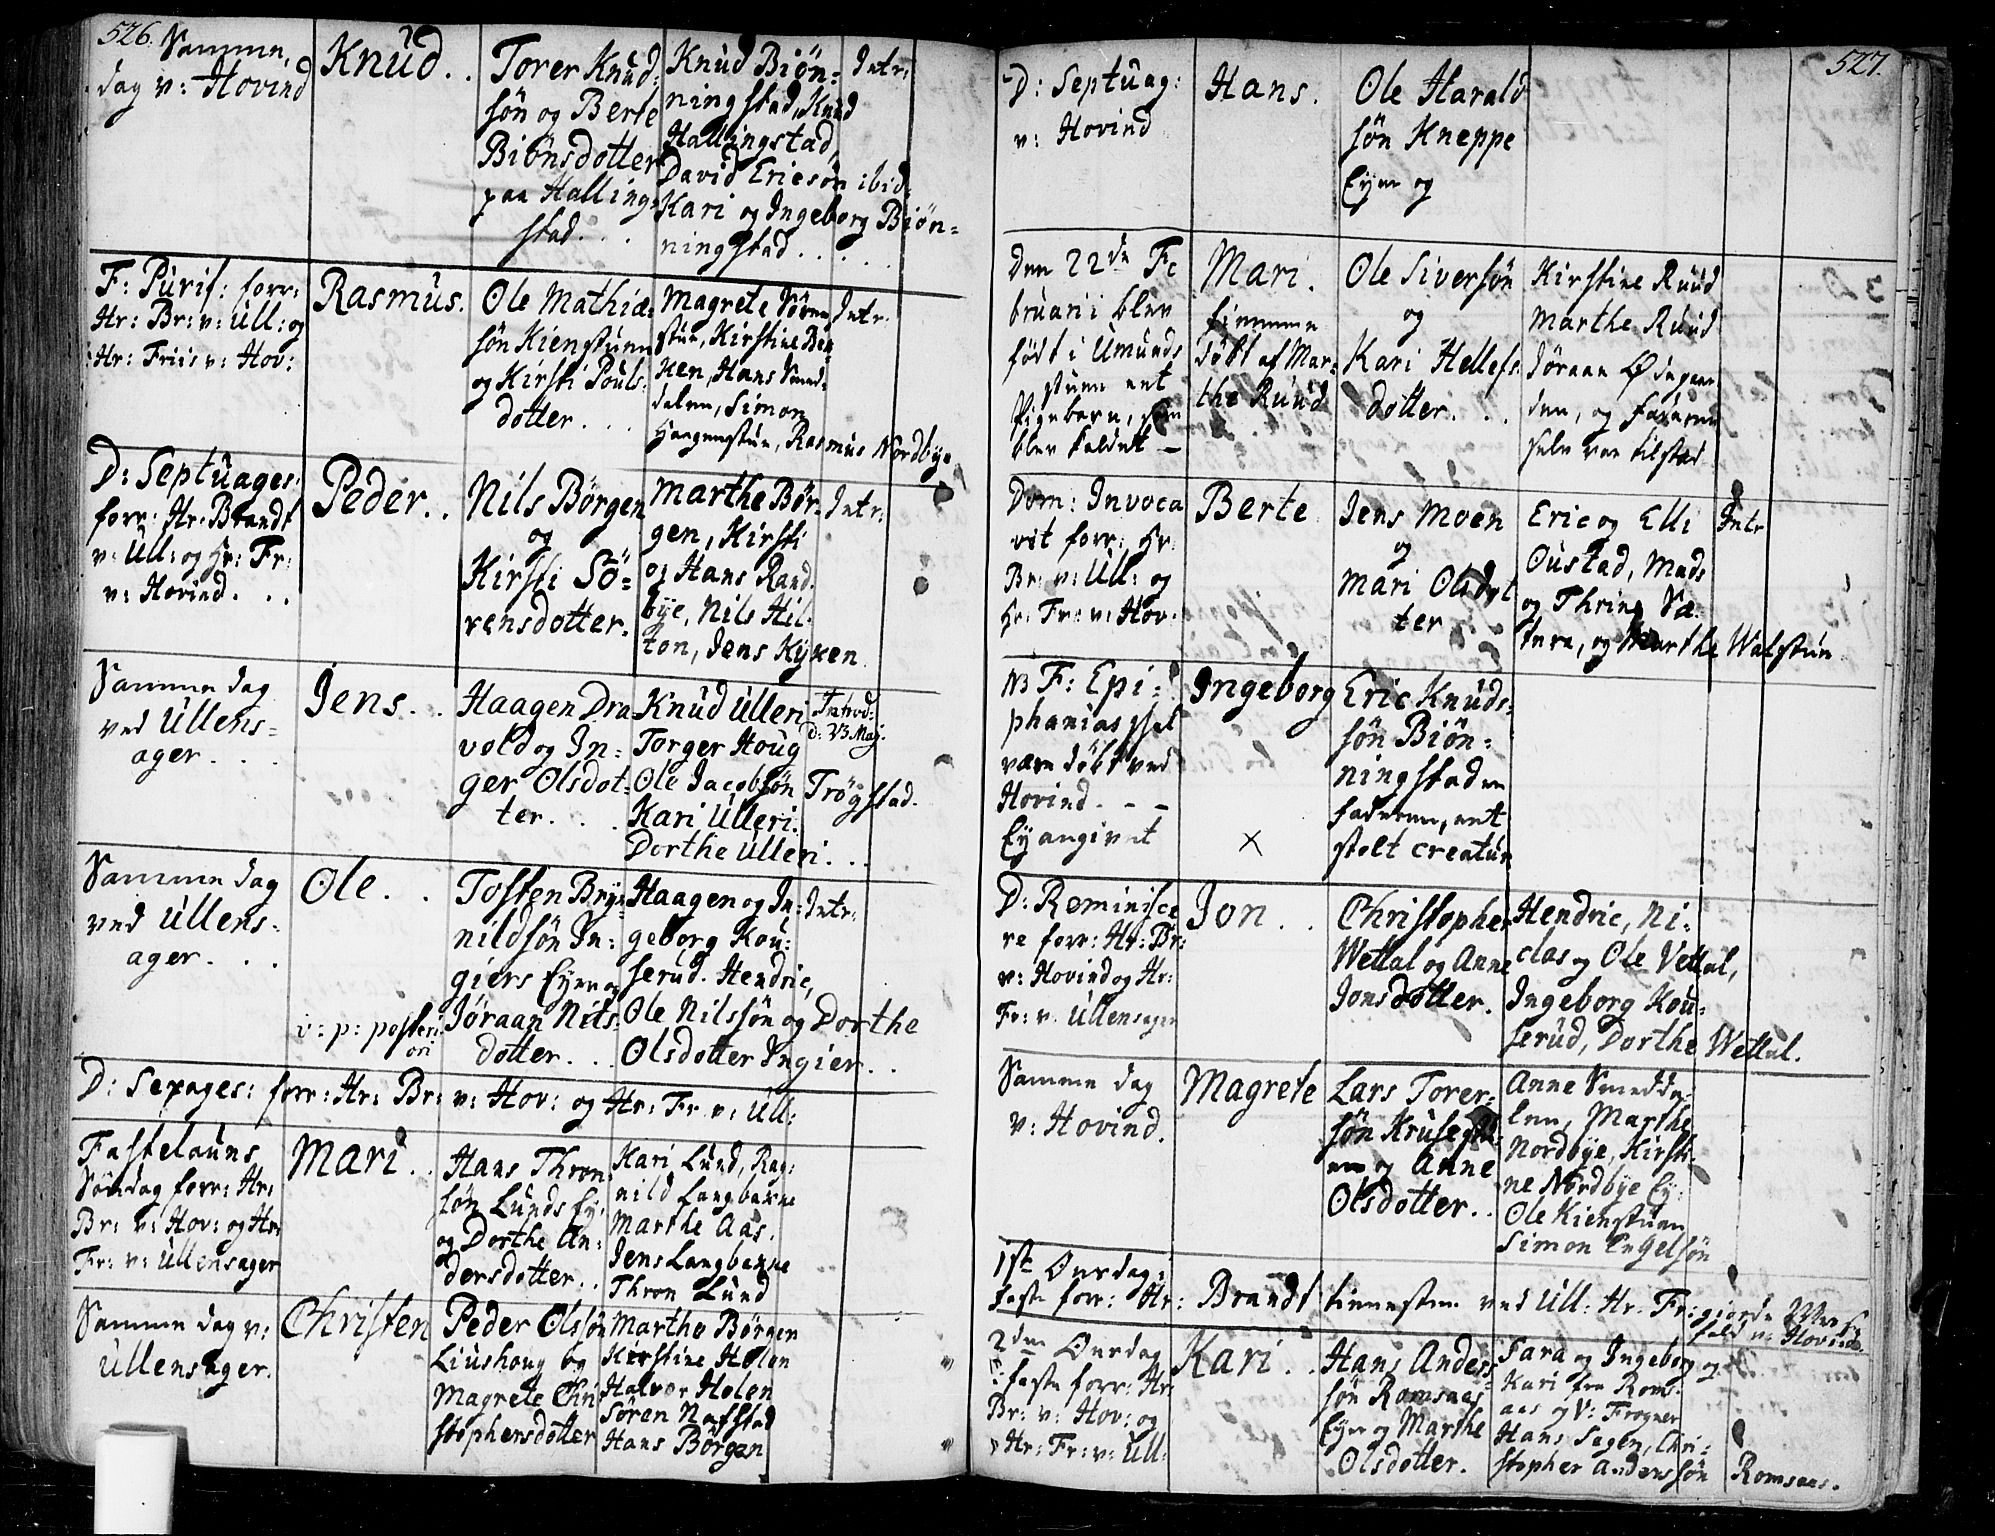 526.
Samme
dag v: Hovind
Knud. .
Torer Knud-
søn og Berte
Biønsdotter
paa Halling-
stad. . .
Knud Biøn-
ningstad, Knud
Hallingstad,
David Ericsøn ibid:
Kari og Ingeborg Biøn-
ningstad . . . . .
Intr:
F: Purif: forr:
Hr: Br: v: Ull: og
Hr: Friis v: Hov:
Rasmus.
Ole Mathiæ-
søn Kienstuen
og Kirsti Pouls-
dotter. . .
Magrete Søren-
stuen, Kirstine Bak-
ken, Hans Smed-
dalen, Simon
Haugenstuen, Rasmus Nordbye
Intr.
D: Septuages:
forr: Hr. Brandt
v: Ull: og Hr: Fr:
v: Hovind. . .
Peder. .
Nils Børgen
og
Kirsti Sø-
rensdotter.
Marthe Bør-
gen, Kirsti
og Hans Rand-
bye, Nils Hil-
ton, Jens Kyken
Intr:
Samme dag
ved Ullens-
ager. . .
Jens. .
Haagen Dra-
vold og In-
ger Olsdot-
ter. . .
Knud Ulleri
Torger Houg
Ole Jacobsøn
Kari Ulleri.
Dorthe Ulleri. . .
Introd:
d: 23 Maj.
Trøgstad.
Samme dag
ved Ullens-
ager. . .
Ole. .
v: p: posteri-
ori
Tosten Bryn-
nildsøn In-
giers Eyer og
Jøraan Nils-
dotter. . .
Haagen og In-
geborg Kou-
serud. Hendric,
Ole Nilssøn og Dorthe
Olsdotter Ingier. .
Intr:
D: Sexages: forr: Hr: Br: v: Hov: og Hr: Fr v: Ull:
Fastelauns
Søndag forr: Hr:
Br: v: Hov: og Hr:
Fr: v: Ullensager
Mari. .
Hans Thron-
søn Lunds Ey.
og Dorthe An-
dersdotter. .
Kari Lund, Rag-
nild Langbakke
Marthe Aas.
Jens Langbakke
Thron Lund
Samme dag v:
Ullensager.
Christen
Peder Olssøn
Liushoug og
Magrete Chri
stophersdotter
Marthe Børgen
Kirstine Holen
Halvor Holen
Søren Nafstad
Hans Børgen
527.
D: Septuag:
v: Hovind
Hans.
Ole Harald
søn Kneppe
Eyer og
Den 22de Fe
bruarii blev
født i Amunds
stuen et
Pigebarn, som
blev kaldet —
Mari.
hiemme
døbt af Mar-
the Ruud
Ole Siversøn
og
Kari Hellefs-
dotter. . .
Kirstine Ruud
Marthe Ruud
Jøraan Ødegaar
den, og Faderen
selv var tilsted
Dom: Invoca
vit forr: Hr.
Br: v: Ull: og
Hr: Fr: v: Hov.
Berte
Jens Moen
og
Mari Olsdot
ter
Eric og Elli
Oustad, Mads
og Thrine Sæ-
tere, og Marthe Walstuen
Intr
NB F: Epi-
phanias skal
være døbt ved
Hovind. - -
Ey angivet
Ingeborg
×
Eric Knuds-
søn Biøn-
ningstad
Faderen, et
stolt creatur
D: Reminisce
re forr: Hr: Br:
v: Hovind og Hr:
Fr: v. Ullensager
Jon. .
Christopher
Wettal og Anne
Jonsdotter.
Hendric, Ni-
clas og Ole Vettal,
Ingeborg Kou-
serud, Dorthe Wettal.
Samme dag
v: Hovind.
Magrete
Lars Torer-
søn
og Anne
Olsdotter. .
Anne Smedda-
len, Marthe
Nordbye, Kirsti-
ne Nordbye Ey.
Ole Kienstuen
Simon Engelsøn
1ste Onsdag i
Faste forr: Hr: Brandt tienesten ved Ull: Hr. Fr: giorde Messe-
fald v: Hovind.
2den Onsdag
i Faste forr: Hr
Br: v: Hov: og
Hr: Fr: v: Ull:
Kari. .
Hans Anders-
søn Romsaas
Eyer og Marthe
Olsdotter.
Sara og Ingeborg og
Kari fra Roms-
aas og V: Frogner
Hans Segen, Chri-
stopher Anderssøn Romsaas.